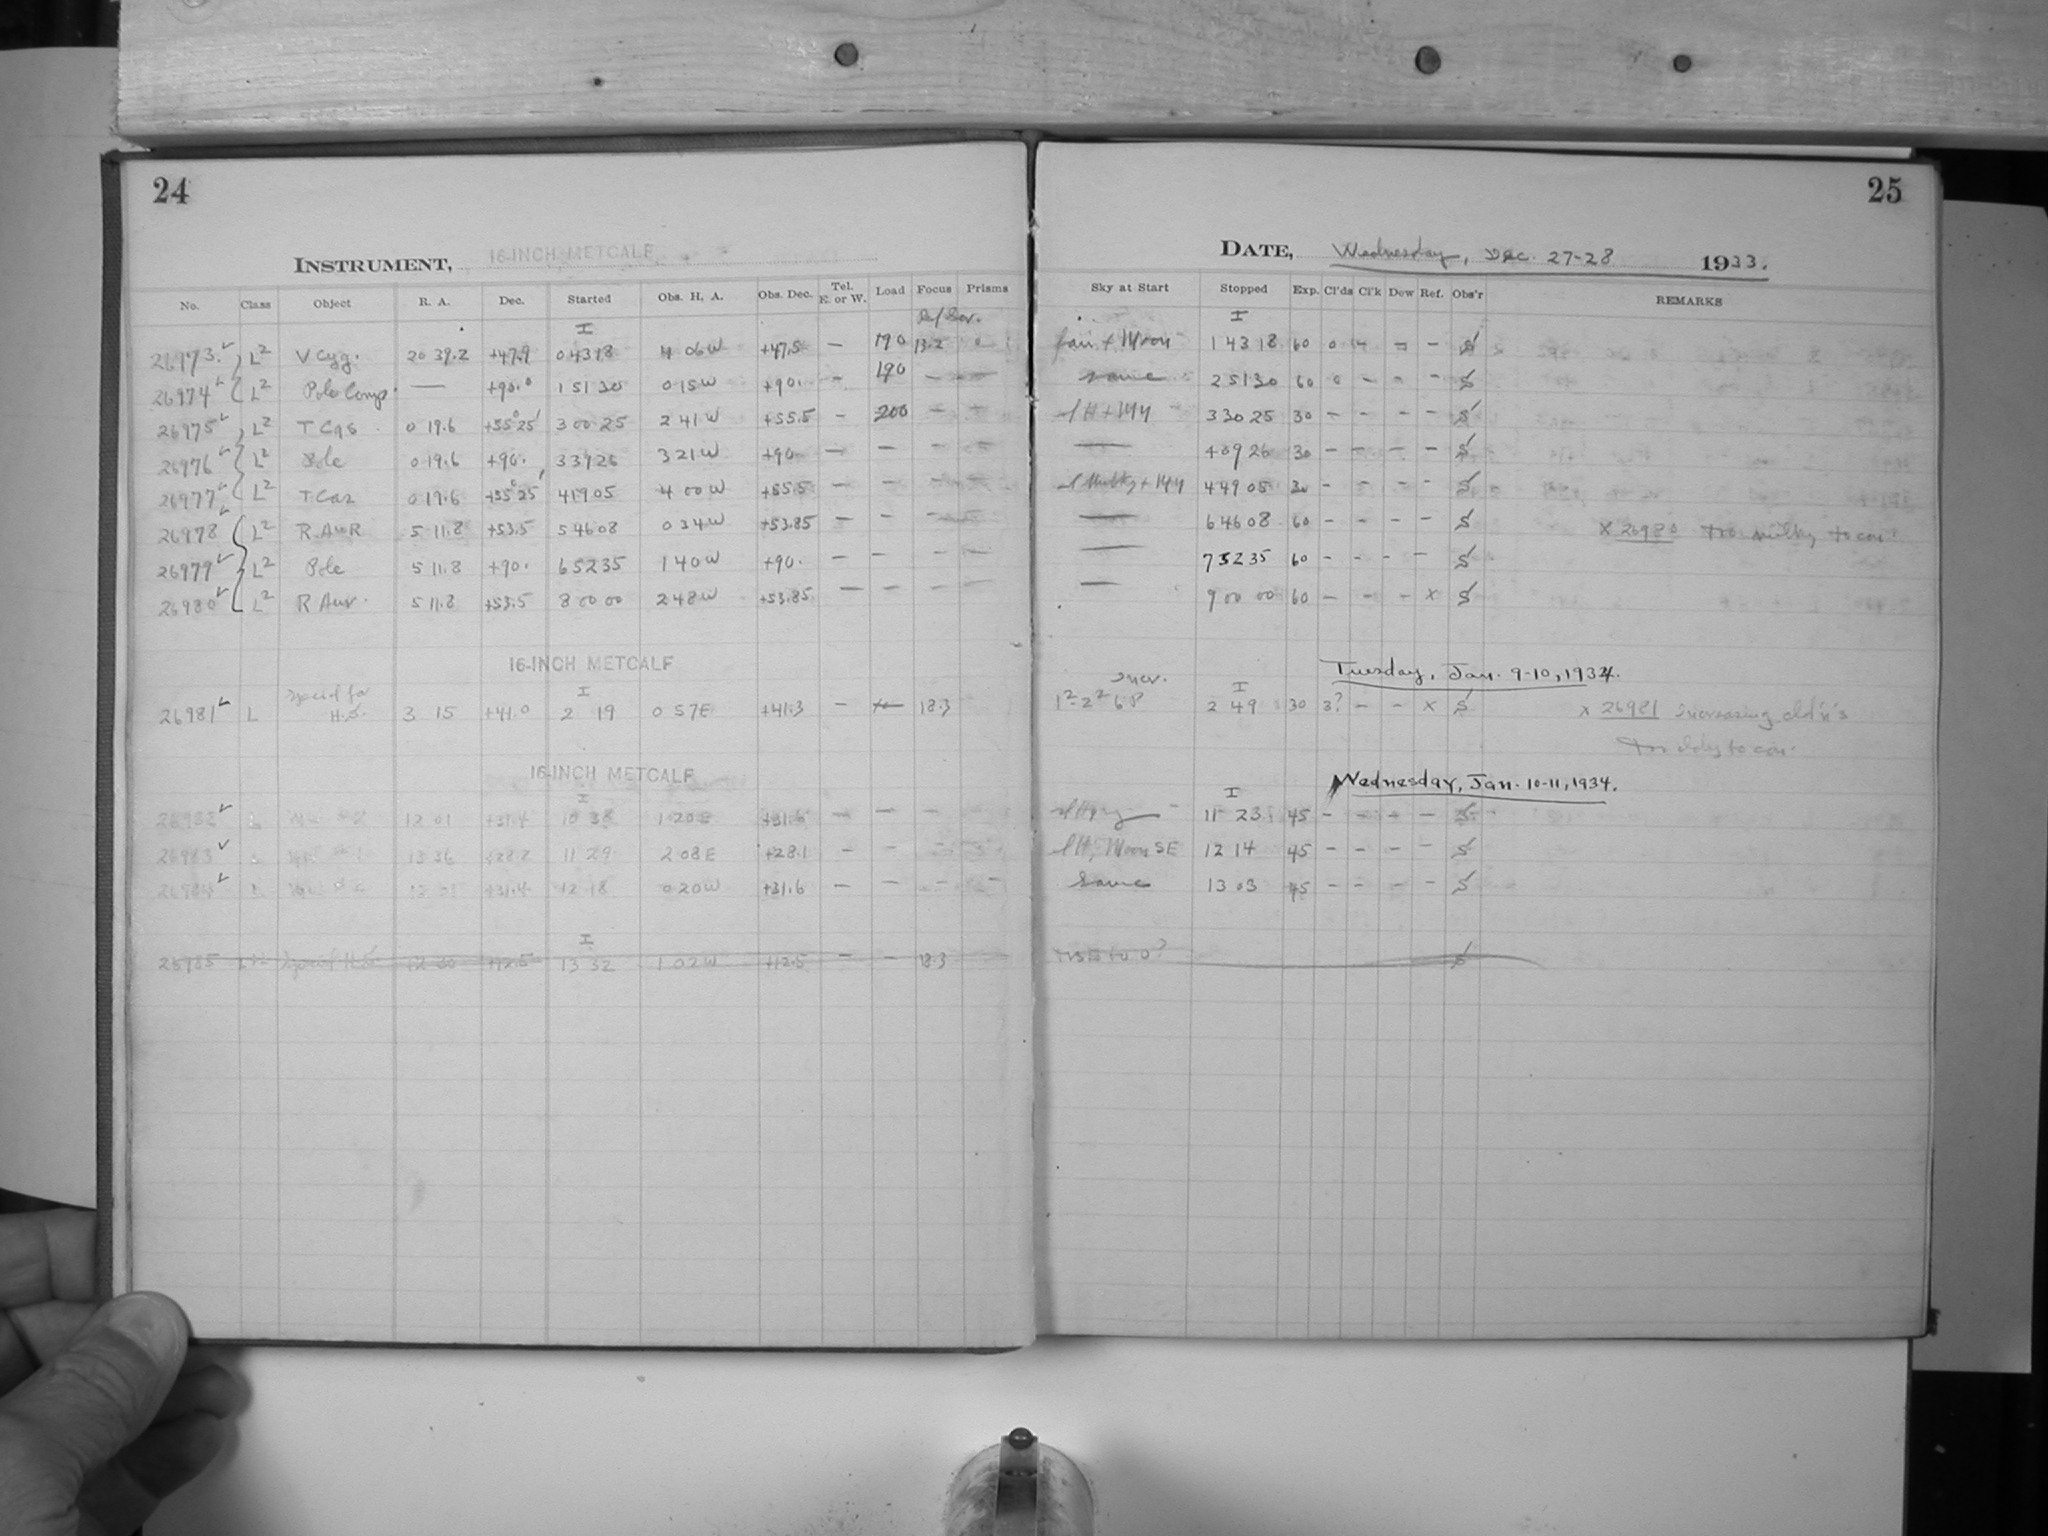 24
INSTRUMENT, 16-INCH METCALF
No. Class Object R. A. Dec. Started Obs. H. A. Obs. Dec. Tel. E. or W. Load Focus Prisms
I
26973 L2 V Cyg. 20 39.2 +47.9 0 43 18 4 06W +47.5 — 190 13.2
26974 L2 Pole Comp. — +90.0 1 51 30 0 15W +90. - 190 — —
26975 L2 T Cas 0 19.6 +55°25' 3 00 25 2 41W +55.5 - 200 —
26976 L2 Pole 0 19.6 +90. 3 39 26 3 21W +90 — — — —
26977 L2 T Cas 0 19.6 +55°25' 4 19 05 4 00W +55.5 — — — —
26978 L2 R. AuR 5 11.8 +53.5 5 46 08 0 34W +53.85 — — — —
26979 L2 Pole 5 11.8 +90. 6 52 35 1 40W +90. — — — —
26980 L2 R Aur. 5 11.8 +53.5 8 00 00 2 48W +53.85 — — — —
16-INCH METCALF
Special for
I
26981 L H.S. 3 15 +41.0 2 19 0 57E +41.3 — 18.3
16-INCH METCALF
I
26982 12 01 +31.4 10 38 1 20E +31.6 — — — —
26983 13 36 +28.2 11 29 2 08E +28.1 — — — —
26984 12 01 +31.4 12 18 0 20W +31.6 — — — —
I
26985 12 00 +12.5 13 32 1 02W +12.5 — — 18.3
25
DATE, Wednesday, Dec. 27-28 1933.
Sky at Start Stopped Exp. Cl'ds Cl'k Dew Ref. Obs'r REMARKS
I
fair + Moon 1 43 18 60 0 — — S
same 2 51 30 60 0 — — — S
3 30 25 30 — — — — S
— 4 09 26 30 — — — — S
4 49 05 30 — — — — S
— 6 46 08 60 — — — — S x 26980 too milky to con.
— 7 52 35 60 — — — — S
— 9 00 00 60 — — — x S
Tuesday, Jan. 9-10, 1934.
incr.
I
1²-2² 6P 2 49 30 3? — — x S x 26981 increasing cld'n's
too cldy to con.
Wednesday, Jan. 10-11, 1934.
I
11 23 45 — — — — S
Moon SE 12 14 45 — — — — S
Same 13 03 45 — — — — S
S